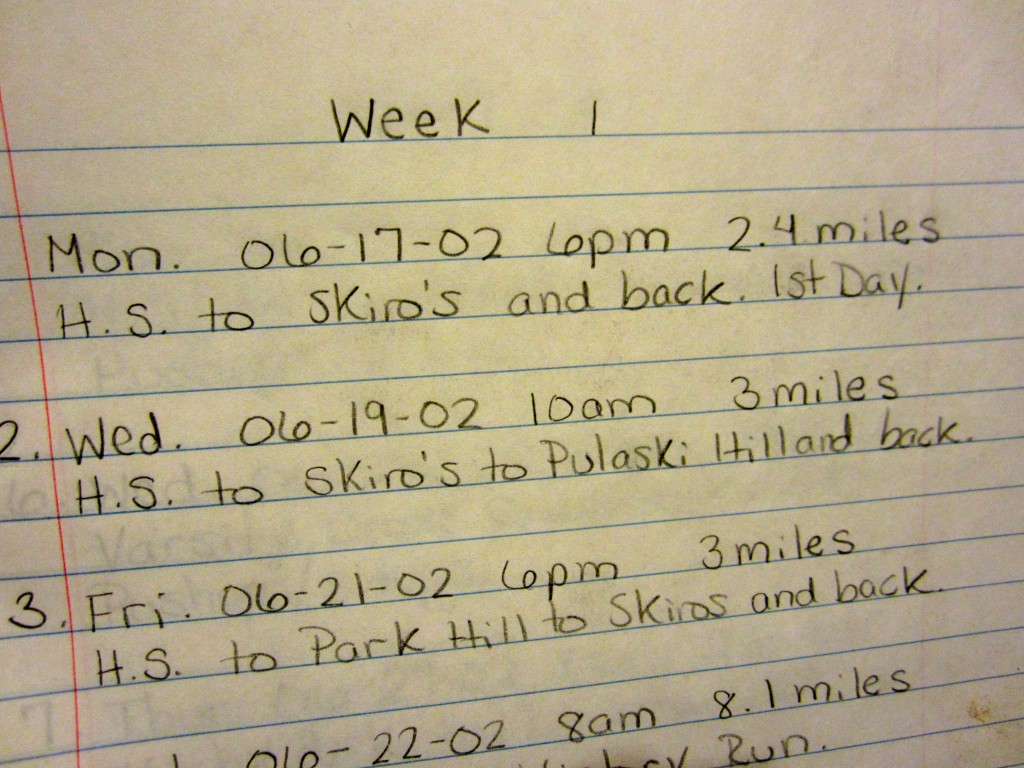 Week 1
Mon. 06-17-02 6pm 2.4 miles
H.S. to Skiro's and back. 1st Day.
2. Wed. 06-19-02 10am 3 miles
H.S. to Skiro's to Pulaski Hill and back.
3. Fri. 06-21-02 6pm 3 miles
H.S. to Park Hill to Skiros and back.
06-22-02 8am 8.1 miles
Run.